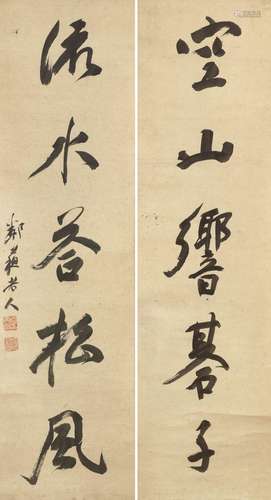 空山響碁子
流水荅松風
鄰蘇老人